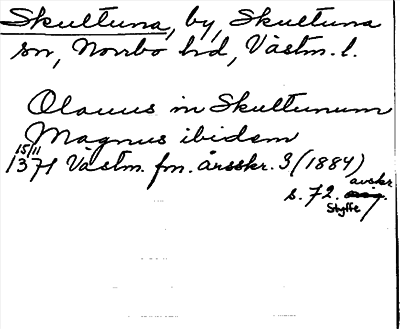 Skultuna, by, Skultuna
sn, Norrbo hd, Västm. l.
Olauus in Skultunum
Magnus ibidem
15/11
1371 Västm. fm. årsskr. 3 (1884)
avskr
s. 72.
Styffe